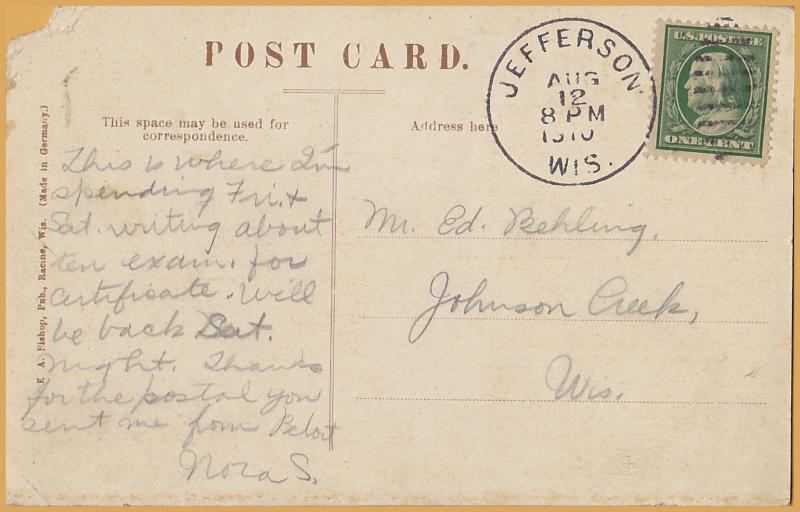 POST CARD.
JEFFERSON
AUG
12
8 PM
1910
WIS.
U.S. POSTAGE
ONE CENT
This space may be used for
correspondence.
Address here
E. A. Bishop, Pub., Racine, Wis. (Made in Germany.)
This is where I'm
spending Fri. &
Sat. writing about
ten exam. for
certificate. Will
be back Sat.
night. Thanks
for the postal you
sent me from Beloit
Nora S.
Mr. Ed. Behling,
Johnson Creek,
Wis.